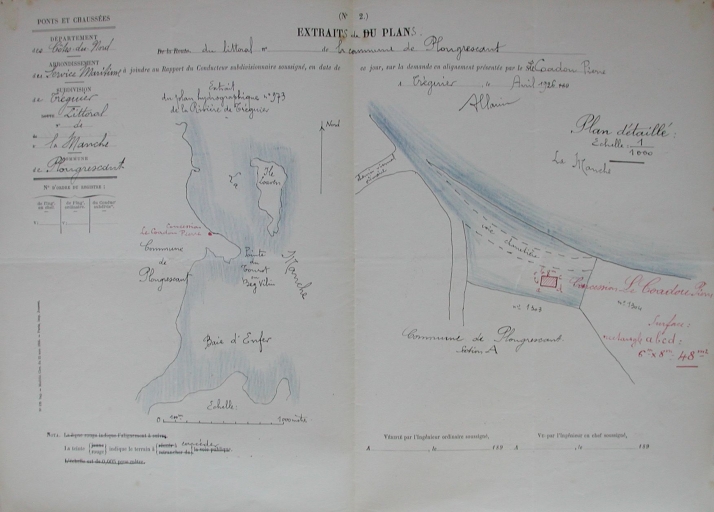 PONTS ET CHAUSSÉES
DÉPARTEMENT
des Côtes du Nord
ARRONDISSEMENT
du Service Maritime
SUBDIVISION
de Tréguier
Littoral
de
la Manche
COMMUNE
de Plougrescant
N° D'ORDRE DU REGISTRE :
(N° 2.)
EXTRAITS de DU PLANS.
De la Route du littoral de la commune de Plougrescant
à joindre au Rapport du Conducteur subdivisionnaire soussigné, en date de ce jour, sur la demande en alignement présentée par le Sr Le Coadou Pierre
à Tréguier le Avril 1926
Allain
Extrait
du plan hydrographique n° 973
de la Rivière de Tréguier
Nord
Ile
Loaven
Concession
Le Coadou Pierre
Commune
de
Plougrescant
Pointe
du
ou
Beg Vilin
Manche
Baie d'Enfer
Echelle :
0 1000 mètres
Plan détaillé :
Echelle 1/1000
La Manche
voie charretière
Concession Le Coadou Pierre
n° 1303
n° 1304
Commune de Plougrescant
Section A
Surface :
rectangle abcd :
6m x 8m = 48 m2
NOTA. La ligne rouge indique l'alignement à suivre.
La teinte (jaune) (rouge) indique le terrain à concéder (la voie publique.
L'échelle est de 0,005 pour mètre.
Vérifié par l'Ingénieur ordinaire soussigné,
A , le 19
Vu par l'Ingénieur en chef soussigné,
A , le 19